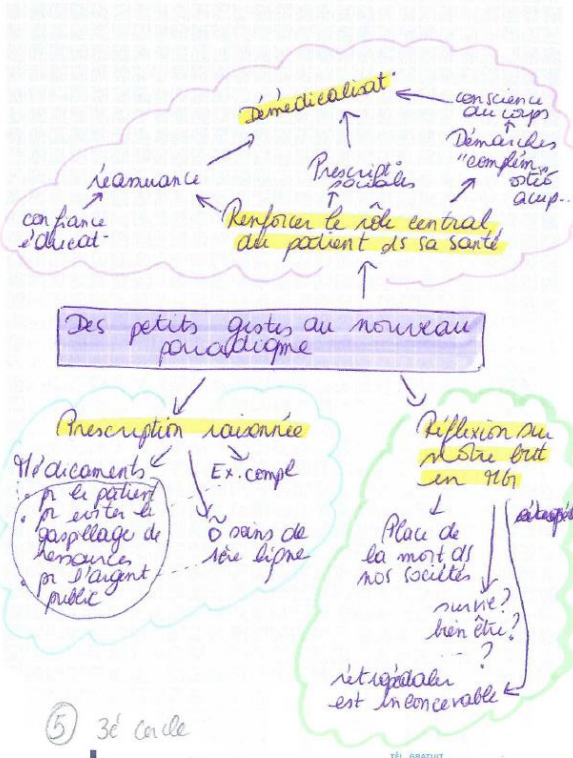 Démédicalisat°
conscience
du corps
Démarches
"complém"
ostéo
acup...
Prescript°
sociales
réassurance
confiance
éducat°
Renforcer le rôle central
du patient ds sa santé
Des petits gestes au nouveau
paradigme
Prescription raisonnée
Médicaments
• pr le patient
• pr éviter le
gaspillage de
ressources
• pr l'argent
public
Ex. compl
soins de
1ère ligne
Réflexion sur
notre but
en MG
Place de
la mort ds
nos sociétés
survie?
bien être?
...?
rétropédaler
est inconcevable
5 3è cercle
TÉL. GRATUIT